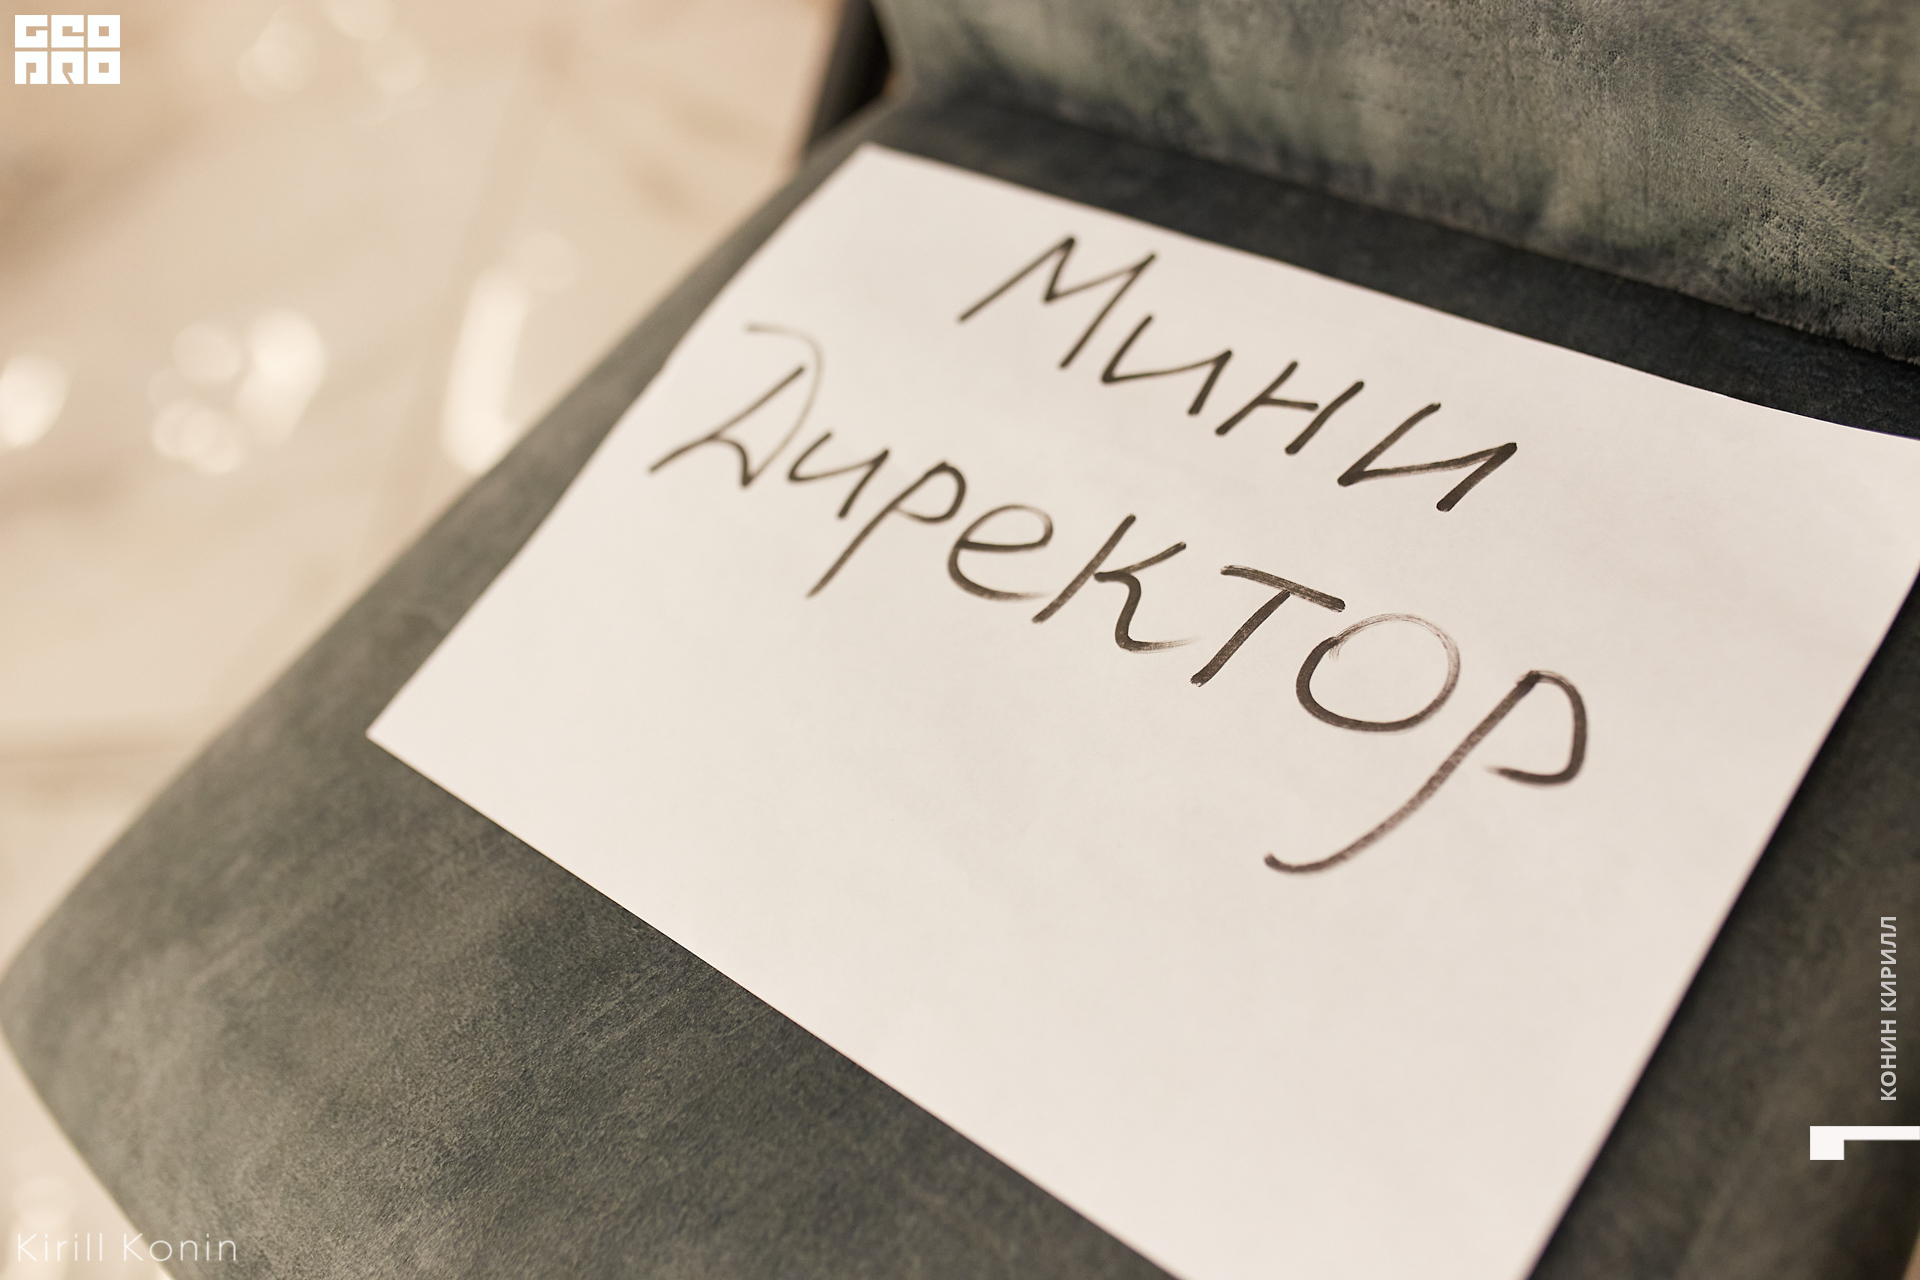 GEO
PRO
Мини
Директор
КОНИН КИРИЛЛ
Kirill Konin